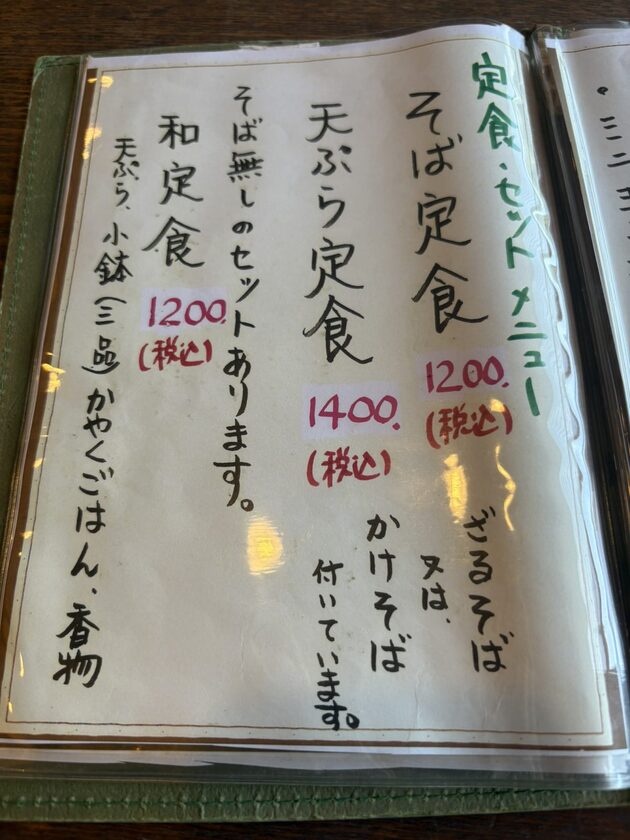 定食・セットメニュー
そば定食
1200.
(税込)
天ぷら定食
1400.
(税込)
ざるそば
又は、
かけそば
付いています。
そば無しのセットあります。
和定食
1200.
(税込)
天ぷら、小鉢(三品)かやくごはん、香物
・ミニ